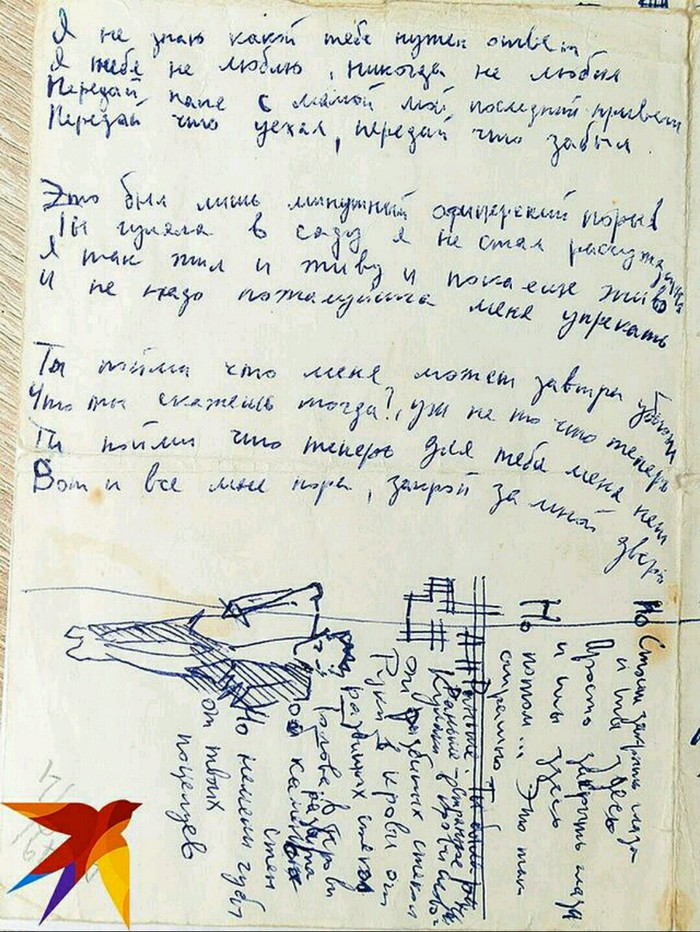 Я не знаю какой тебе нужен ответ
Я тебя не люблю, никогда не любил
Передай папе с мамой мой последний привет
Передай что уехал, передай что забыл.
Это был лишь минутный офицерский порыв
Ты гуляла в саду я не стал
Я так жил и живу и пока еще
И не надо пожалуйста меня упрекать
Ты пойми что меня может завтра
Что ты скажешь тогда?, уж не то что теперь
Ты пойми что теперь для тебя меня нет
Вот и все мне пора, закрой за мной дверь
Но Стоит закрыть глаза
и ты здесь
Просто закрыть глаза
и ты здесь
Но потом... Это так
страшно
Раньше
Кулаки в крови
от разбитых стекол
Руки в крови от
разбитых стекол
Голова в крови
от каменных
стен
Но немеют губы
от твоих
поцелуев